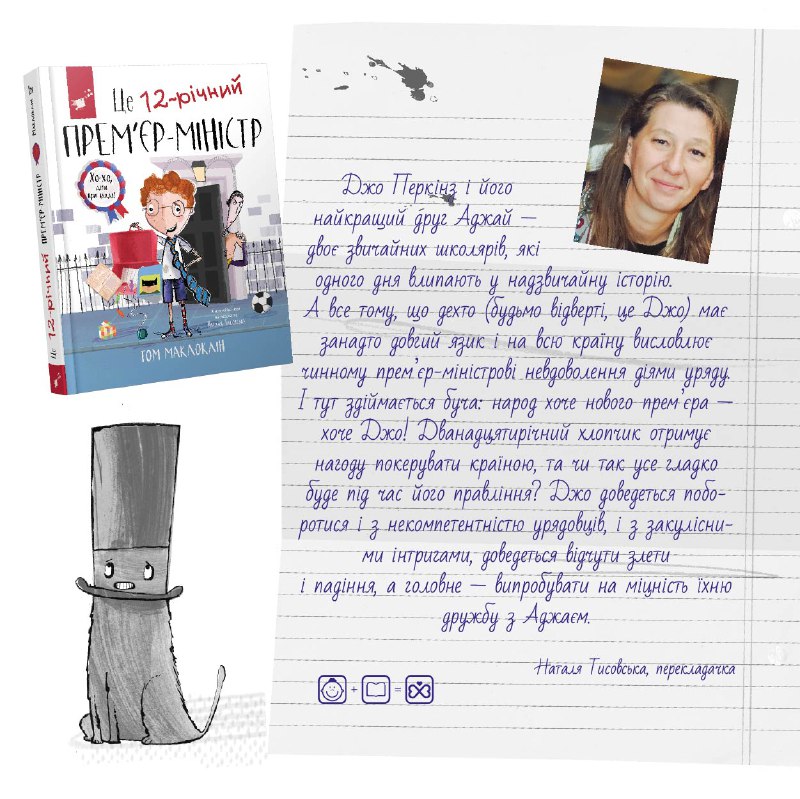 Це 12-річний
ПРЕМ'ЄР-МІНІСТР
Хо-хо,
ТОМ МАКЛОКЛІН
Це 12-річний ПРЕМ'ЄР-МІНІСТР
Джо Перкінз і його
найкращий друг Аджай —
двоє звичайних школярів, які
одного дня влипають у надзвичайну історію.
А все тому, що дехто (будьмо відверті, це Джо) має
занадто довгий язик і на всю країну висловлює
чинному прем'єр-міністрові невдоволення діями уряду.
І тут здіймається буча: народ хоче нового прем'єра —
хоче Джо! Дванадцятирічний хлопчик отримує
нагоду покерувати країною, та чи так усе гладко
буде під час його правління? Джо доведеться побо-
ротися і з некомпетентністю урядовців, і з закулісни-
ми інтригами, доведеться відчути злети
і падіння, а головне — випробувати на міцність їхню
дружбу з Аджаєм.
Наталя Тисовська, перекладачка